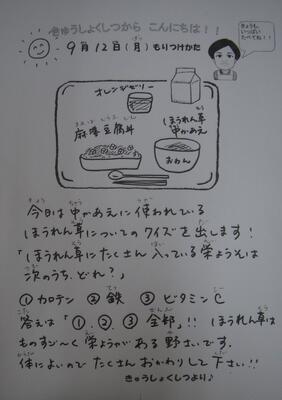 きゅうしょくしつから こんにちは!!
きょうも、
いっぱい
たべてね!!
9月12日(月)もりつけかた
オレンジゼリー
麻婆豆腐丼
ほうれん草
中かあえ
おわん
今日は中かあえに使われている
ほうれん草についてのクイズを出します!
「ほうれん草にたくさん入っている栄ようそは
次のうち、どれ?」
①カロテン ②鉄 ③ビタミンC
答えは「①、②、③全部」!! ほうれん草は
ものすご〜く栄ようがある野さいです。
体によいのでたくさんおかわりして下さい!!
きゅうしょくしつより♪